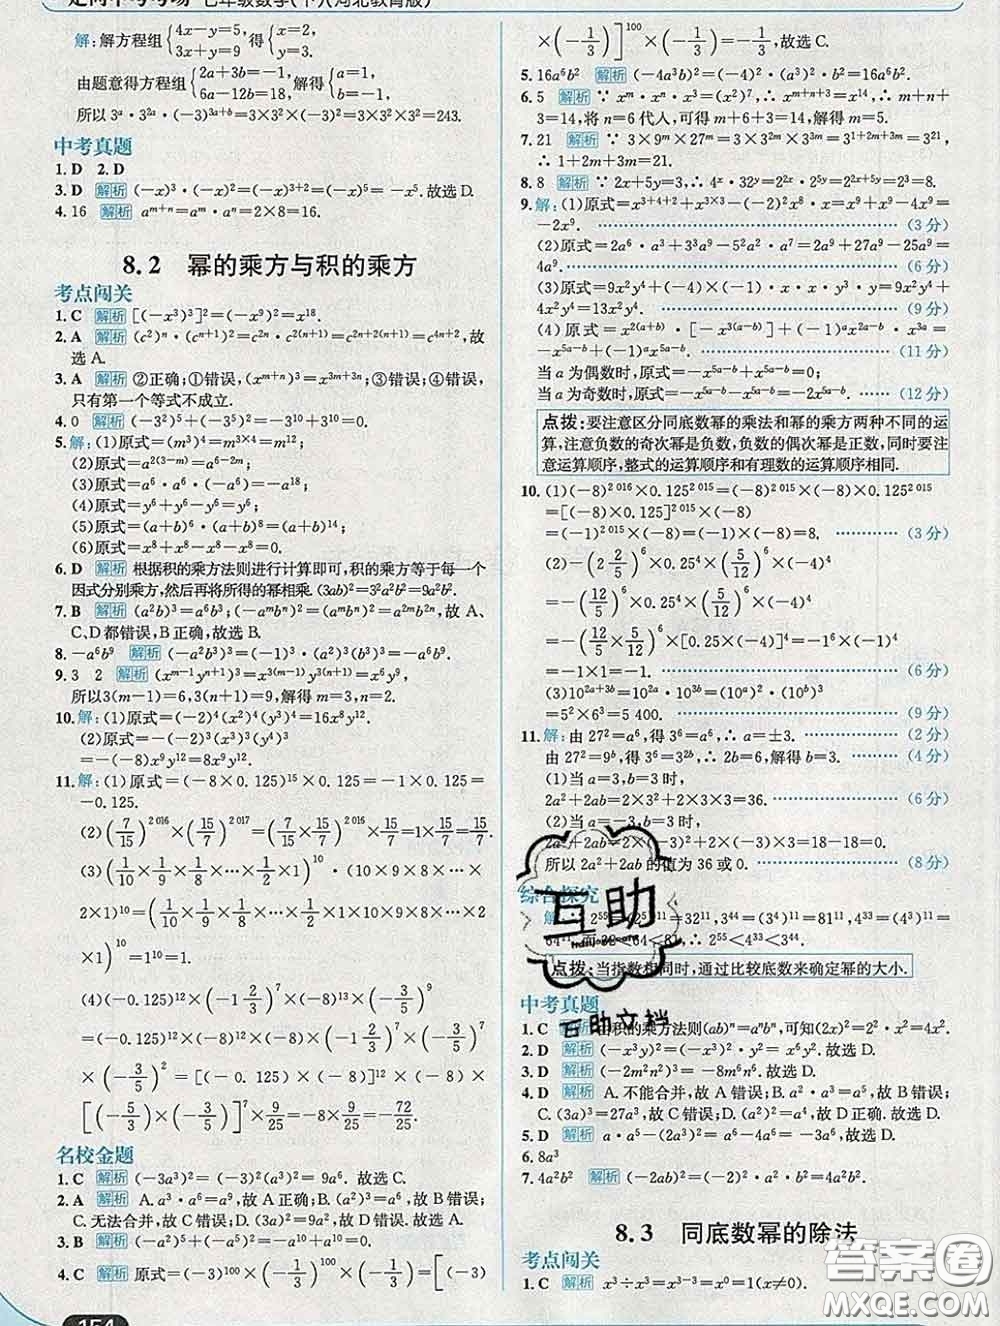 走向中考考场 七年级数学(下)(河北教育版)
解:解方程组{4x-y=5, 3x+y=9 得{x=2, y=3.
由题意得方程组{2a+3b=-1, 6a-12b=18, 解得{a=1, b=-1.
所以3ᵃ·3²ᵃ·(-3)³ᵃ⁺ᵇ=3×3²×(-3)²=3×3²×3²=243.
中考真题
1. D 2. D
3. D 解析 (-x)³·(-x)²=(-x)³⁺²=(-x)⁵=-x⁵.故选 D.
4. 16 解析 aᵐ⁺ⁿ=aᵐ·aⁿ=2×8=16.
8.2 幂的乘方与积的乘方
考点闯关
1. C 解析 [(-x³)³]²=(-x⁹)²=x¹⁸.
2. A 解析 (c²)ⁿ·(cⁿ⁺¹)²=c²ⁿ·c²⁽ⁿ⁺¹⁾=c²ⁿ⁺²⁽ⁿ⁺¹⁾=c⁴ⁿ⁺²,故
选 A.
3. A 解析 ②正确;①错误,(xᵐ⁺ⁿ)³=x³ᵐ⁺³ⁿ;③错误;④错误,
只有第一个等式不成立.
4. 0 解析 (-3²)⁵+(-3⁵)²=-3¹⁰+3¹⁰=0.
5. 解:(1)原式=(m³)⁴=m³ˣ⁴=m¹²;
(2)原式=a²⁽³⁻ᵐ⁾=a⁶⁻²ᵐ;
(3)原式=a⁶·a⁶·(-a⁶)=-a¹⁸;
(4)原式=y⁶+y⁶=2y⁶;
(5)原式=(a+b)⁶·(a+b)⁸=(a+b)¹⁴;
(6)原式=x⁸+x⁸-x⁸-x⁸=0.
6. D 解析 根据积的乘方法则进行计算即可,积的乘方等于每一个
因式分别乘方,然后再将所得的幂相乘.(3ab)²=3²a²b²=9a²b².
7. B 解析 (a²b)³=a⁶b³;(-aᵐbⁿ)²=(aᵐbⁿ)²=a²ᵐb²ⁿ,故 A、
C、D都错误,B正确,故选 B.
8. -a⁶b⁹ 解析 (-a²b³)³=(-1)³·(a²)³(b³)³=-a⁶b⁹.
9. 3 2 解析 (xᵐ⁻¹yⁿ⁺¹)³=x³⁽ᵐ⁻¹⁾y³⁽ⁿ⁺¹⁾=x⁶y⁹,
所以3(m-1)=6,3(n+1)=9,解得m=3,n=2.
10. 解:(1)原式=(-2)⁴(x²)⁴(y)⁴=16x⁸y⁴.
(2)原式=-(-2)³(x³)³(y⁴)³
=-(-8)x⁹y¹²=8x⁹y¹².
11. 解:(1)原式=(-8×0.125)¹⁵×0.125=-1×0.125=
-0.125.
(2)(7/15)²⁰¹⁶×(15/7)²⁰¹⁷=(7/15×15/7)²⁰¹⁶×15/7=1×15/7=15/7.
(3)(1/10×1/9×1/8×…×1/2×1)¹⁰·(10×9×8×…×
2×1)¹⁰=(1/10×1/9×1/8×…×1/2×1×10×9×8×…×2
×1)¹⁰=1¹⁰=1.
(4)(-0.125)¹²×(-1 2/3)⁷×(-8)¹³×(-3/5)⁹
=(-0.125)¹²×(-8)¹²×(-8)×(-1 2/3)⁷×(-3/5)⁷
×(-3/5)²=[(-0.125)×(-8)]¹²×(-8)×
[(-5/3)×(-3/5)]⁷×9/25=-8×9/25=-72/25.
名校金题
1. C 解析 (-3a³)²=(-3)²(a³)²=9a⁶.故选 C.
2. A 解析 A.a³·a⁶=a⁹,故 A 正确;B.(a²)³=a⁶,故 B 错误;
C.无法合并,故 C 错误;D.(3a)²=9a²,故 D 错误.故选 A.
3. B 解析 (-a²)⁵+(-a⁵)²=-a¹⁰+a¹⁰=0.
4. C 解析 原式=(-3)¹⁰⁰×(-1/3)¹⁰⁰×(-1/3)=[(-3)
×(-1/3)]¹⁰⁰×(-1/3)=-1/3,故选 C.
5. 16a⁶b² 解析 (-4a³b)²=(-4)²·(a³)²·b²=16a⁶b².
6. 5 解析 ∵xᵐ·xⁿ·x³=(x²)⁷,∴xᵐ⁺ⁿ⁺³=x¹⁴,∴m+n+
3=14,将n=6代入,可得m+6+3=14,解得m=5.
7. 21 解析 ∵3×9ᵐ×27ᵐ=3×3²ᵐ×3³ᵐ=3¹⁺²ᵐ⁺³ᵐ=3²¹,
∴1+2m+3m=21.
8. 8 解析 ∵2x+5y=3,∴4ˣ·32ʸ=2²ˣ·2⁵ʸ=2²ˣ⁺⁵ʸ=2³=8.
9. 解:(1)原式=x³⁺⁴⁺²+x³ˣ³-(-2)²x⁸·x=x⁹+x⁹-4x⁹=
-2x⁹. (3 分)
(2)原式=2a⁶·a³+3a⁹-5²a²·a⁷=2a⁹+27a⁹-25a⁹=
4a⁹. (6 分)
(3)原式=9x²y⁴+(-2)²·(-1)·x·x·y³·(-y)=9x²y⁴+
4x²y⁴=13x²y⁴. (9 分)
(4)原式=x²⁽ᵃ⁺ᵇ⁾·[-x³⁽ᵃ⁻ᵇ⁾]+(-1)ᵃx²ᵃ⁻ᵇ·x³ᵃ=
-x⁵ᵃ⁻ᵇ+(-1)ᵃx⁵ᵃ⁻ᵇ. (11 分)
当a为偶数时,原式=-x⁵ᵃ⁻ᵇ+x⁵ᵃ⁻ᵇ=0.
当a为奇数时,原式=-x⁵ᵃ⁻ᵇ-x⁵ᵃ⁻ᵇ=-2x⁵ᵃ⁻ᵇ. (12 分)
点拨:要注意区分同底数幂的乘法和幂的乘方两种不同的运
算,注意负数的奇次幂是负数,负数的偶次幂是正数,同时要注
意运算顺序,整式的运算顺序和有理数的运算顺序相同.
10. (1)(-8)²⁰¹⁶×0.125²⁰¹⁵=(-8)²⁰¹⁵×(-8)×0.125²⁰¹⁵
=[(-8)×0.125]²⁰¹⁵×(-8)
=(-1)²⁰¹⁵×(-8)=8. (3 分)
(2)-(2 2/5)⁶×0.25⁴×(5/12)⁶×(-4)⁴
=-(12/5)⁶×0.25⁴×(5/12)⁶×(-4)⁴
=-(12/5×5/12)⁶×[0.25×(-4)]⁴=-1⁶×(-1)⁴
=-1×1=-1. (6 分)
(3)10²ᵃ⁺³ᵇ=10²ᵃ·10³ᵇ=(10ᵃ)²·(10ᵇ)³
=5²×6³=5 400. (9 分)
11. 解:由27²=a⁶,得3⁶=a⁶,∴a=±3. (2 分)
由27²=9ᵇ,得3⁶=3²ᵇ,∴2b=6,解得b=3. (4 分)
(1)当a=3,b=3时,
2a²+2ab=2×3²+2×3×3=36. (6 分)
(2)当a=-3,b=3时,
2a²+2ab=2×(-3)²+2×(-3)×3=18-18=0.
所以2a²+2ab的值为36或0. (8 分)
综合探究
解:2⁵⁵=(2⁵)¹¹=32¹¹,3⁴⁴=(3⁴)¹¹=81¹¹,4³³=(4³)¹¹=
64¹¹,而32<64<81,∴2⁵⁵<4³³<3⁴⁴.
点拨:当指数相同时,通过比较底数来确定幂的大小.
中考真题
1. C 解析 由积的乘方法则(ab)ⁿ=aⁿbⁿ,可知(2x)²=2²·x²=4x².
2. D 解析 (-x³y)²=(-x³)²·y²=x⁶y².故选 D.
3. D 解析 (-2m²n²)³=-8m⁶n⁶.故选 D.
4. D 解析 A.不能合并,故 A 错误;B.a²·a³=a⁵,故 B 错误;
C.(3a)³=27a³,故 C 错误;D.(a²)²=a⁴,故 D 正确.故选 D.
5. D 解析 a·a³=a⁴.故选 D.
6. 8a³
7. 4a²b² 解析 (-2ab)²=(-2)²·a²·b²=4a²b².
8.3 同底数幂的除法
考点闯关
1. C 解析 x³÷x³=x³⁻³=x⁰=1(x≠0).
154
互助
互助文档
答案圈
MXQE.COM